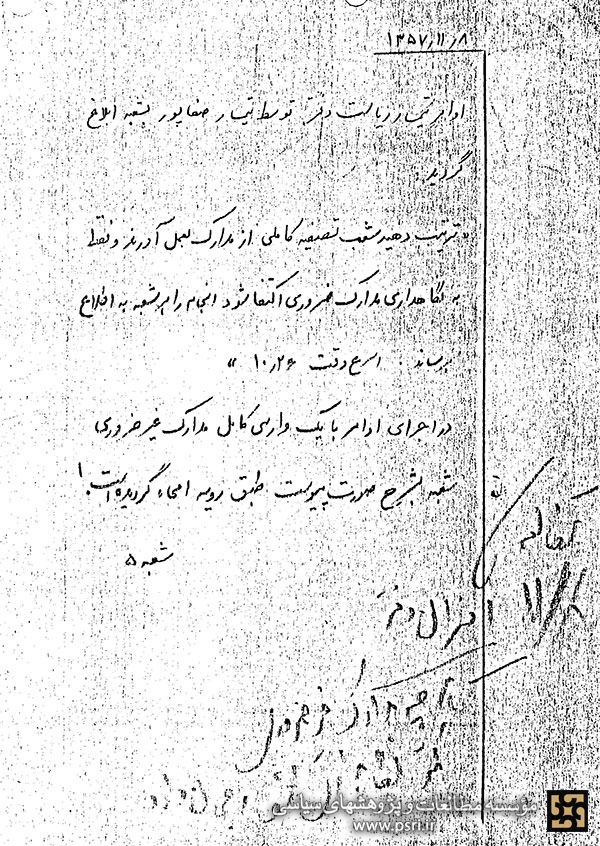 ۱۳۵۷/۱۱/۸
اوامر تیمسار ریاست دفتر توسط تیمسار صفاپور بشعبه ابلاغ
گردید:
«ترتیب دهید شعب تصفیه کاملی از مدارک بعمل آورند و فقط
به نگاهداری مدارک ضروری اکتفا شود انجام را هر شعبه به اطلاع
برسانند. اسرع وقت ۱۰/۲۶»
در اجرای اوامر با یک وارسی کامل مدارک غیر ضروری
شعبه بشرح صورت پیوست طبق رویه امحاء گردیده است.
شعبه ۵
۱۱/۸
مؤسسه مطالعات و پژوهشهای سیاسی
www.psri.ir